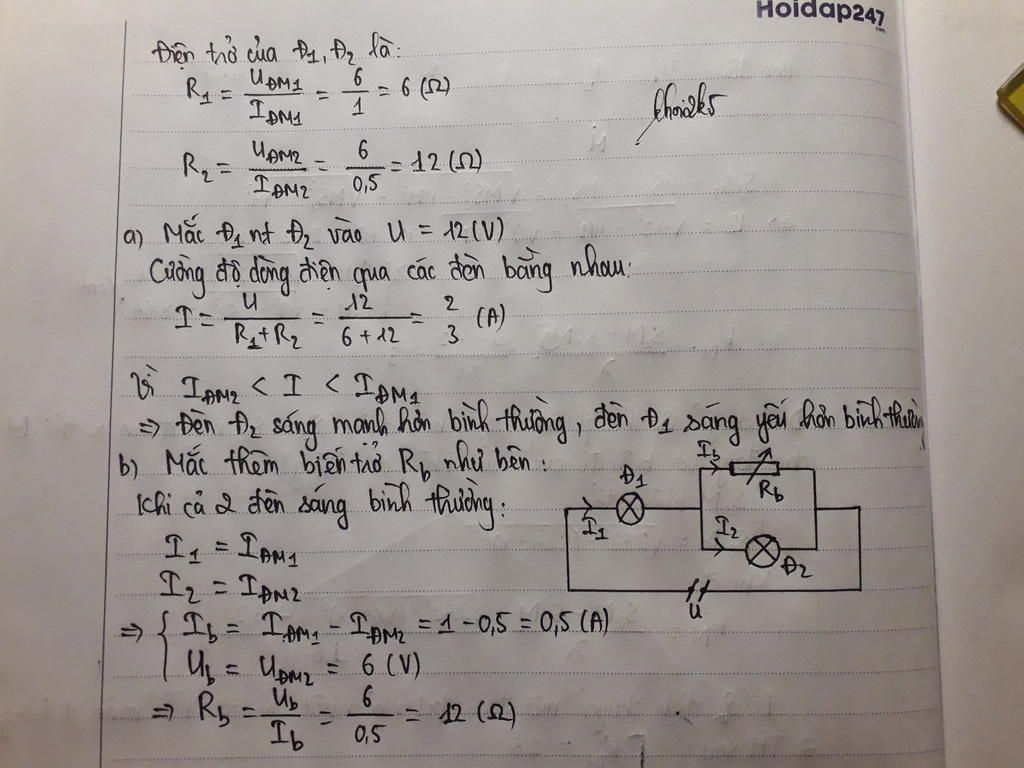 Hoidap247
.com
Điện trở của Đ1, Đ2 là:
R1 = UĐM1/IĐM1 = 6/1 = 6 (Ω)
khoi2k5
R2 = UĐM2/IĐM2 = 6/0,5 = 12 (Ω)
a) Mắc Đ1 nt Đ2 vào U = 12 (V)
Cường độ dòng điện qua các đèn bằng nhau:
I = U/(R1+R2) = 12/(6+12) = 2/3 (A)
Vì IĐM2 < I < IĐM1
=> Đèn Đ2 sáng mạnh hơn bình thường, đèn Đ1 sáng yếu hơn bình thường
b) Mắc thêm biến trở Rb như bên:
Khi cả 2 đèn sáng bình thường:
I1 = IĐM1
I2 = IĐM2
=> { Ib = IĐM1 - IĐM2 = 1 - 0,5 = 0,5 (A)
Ub = UĐM2 = 6 (V)
=> Rb = Ub/Ib = 6/0,5 = 12 (Ω)
Ib
Rb
Đ1
I1
I2
Đ2
U